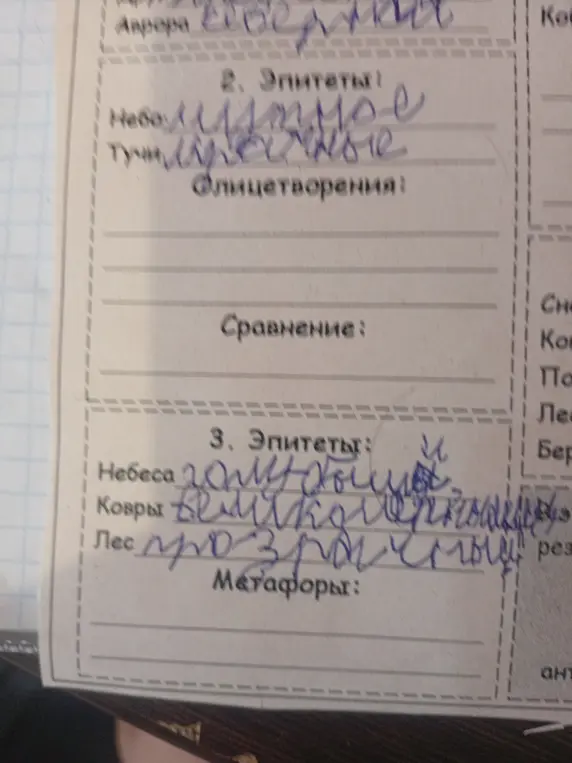 Аврора северной
2. Эпитеты:
Небо мутное
Тучи мрачные
Олицетворения:
Сравнение:
3. Эпитеты:
й
Небеса голубыми
Ковры великолепными
Лес прозрачный
Метафоры:
Ко
Сн
Ко
По
Ле
Бер
рез
ант